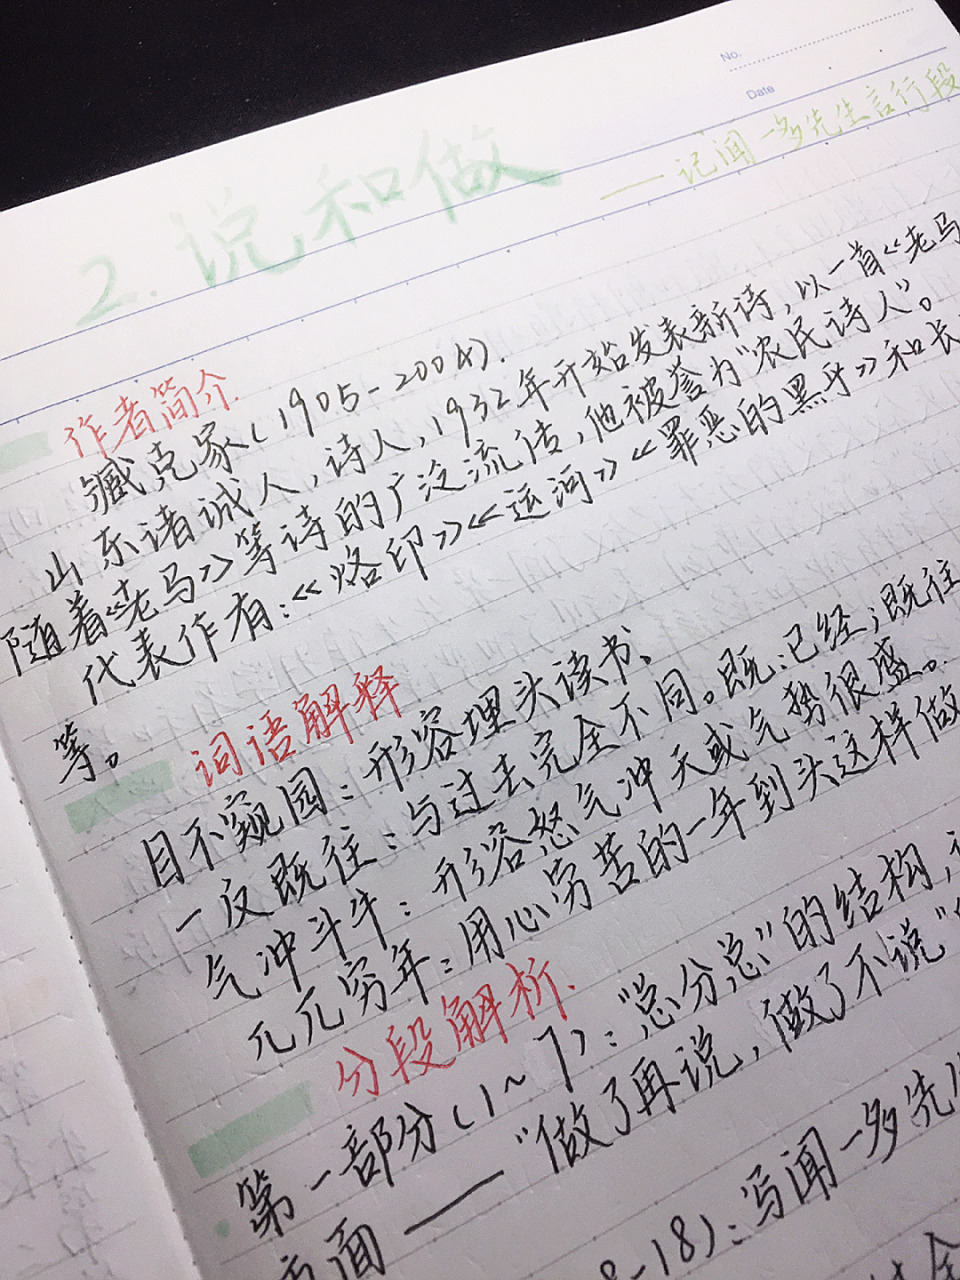 No.
Date
2. 说和做
——记闻一多先生言行段
作者简介.
臧克家(1905-2004).
山东诸诚人,诗人,1932年开始发表新诗,以一首《老马
随着《老马》等诗的广泛流传,他被誉为“农民诗人”。
代表作有:《烙印》《运河》《罪恶的黑手》和长
等。
词语解释
目不窥园:形容埋头读书、
一反既往:与过去完全不同。既:已经;既往
气冲斗牛:形容怒气冲天或气势很盛。
兀兀穷年:用心劳苦的一年到头这样做
分段解析.
第一部分(1~7):“总分总”的结构,
方面——“做了再说,做了不说”
8-18):写闻一多先